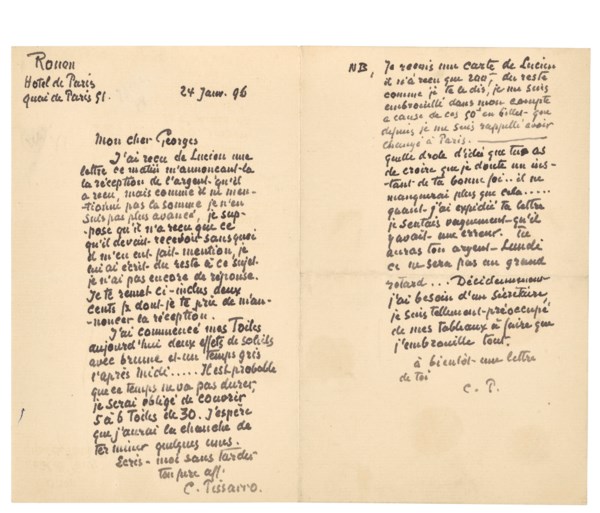 Rouen
Hotel de Paris
quai de Paris 51.
24 Janv. 96
Mon cher Georges
J'ai reçu de Lucien une
lettre ce matin m'annoncant la
la réception de l'argent qu'il
a recu, mais comme il ne men-
tionne pas la somme je n'en
suis pas plus avancé, je sup-
-pose qu'il n'a reçu que ce
qu'il devait recevoir sans quoi
il m'en eut fait mention, je
lui ai écrit du reste à ce sujet.
je n'ai pas encore de réponse.
Je te remet ci-inclus deux
cents f dont je te prie de m'an-
-noncer la réception.
J'ai commencé mes Toiles
aujourd'hui deux effets de soleils
avec brume et un temps gris
l'après midi..... Il est probable
que ce temps ne va pas durer,
je serai obligé de couvrir
5 à 6 Toiles de 30. J'espère
que j'aurai la chance de
terminer quelques unes.
Ecris-moi sans tarder
ton père aff.
C. Pissarro.
NB, Je reçois une carte de Lucien
il n'a reçu que 200f, du reste
comme je te le dis, je me suis
embrouillé dans mon compte
a cause de ces 50f en billet que
depuis je me suis rappellé avoir
changé à Paris.
quelle drole d'idée que tu as
de croire que je doute un ins-
-tant de ta bonne foi.. il ne
manquerai plus que cela.....
quant j'ai expédié ta lettre
je sentais vaguement qu'il
y avait une erreur. Tu
auras ton argent Lundi
ce ne sera pas un grand
retard... Décidemment
j'ai besoin d'un Sécrétaire
je suis tellement préoccupé
de mes tableaux à faire que
j'embrouille tout.
à bientôt une lettre
de toi
C. P.